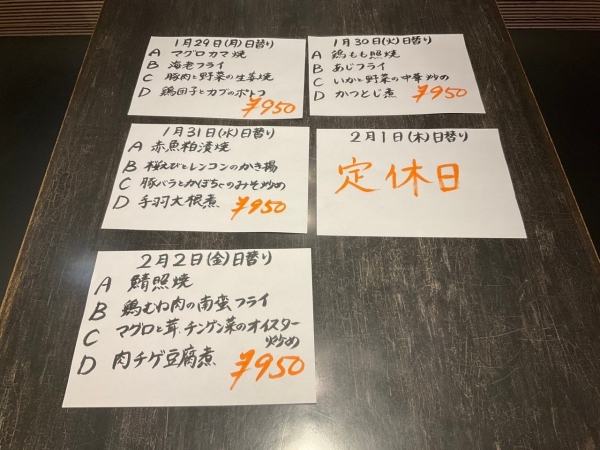 1月29日(月)日替り
A マグロカマ焼
B 海老フライ
C 豚肉と野菜の生姜焼
D 鶏団子とカブのポトフ
¥950
1月30日(火)日替り
A 鶏もも照焼
B あじフライ
C いかと野菜の中華炒め
D かつとじ煮
¥950
1月31日(水)日替り
A 赤魚粕漬焼
B 桜えびとレンコンのかき揚
C 豚バラとかぼちゃのみそ炒め
D 手羽大根煮
¥950
2月1日(木)日替り
定休日
2月2日(金)日替り
A 鯖照焼
B 鶏むね肉の南蛮フライ
C マグロと茸、チンゲン菜のオイスター
炒め
D 肉チゲ豆腐煮
¥950